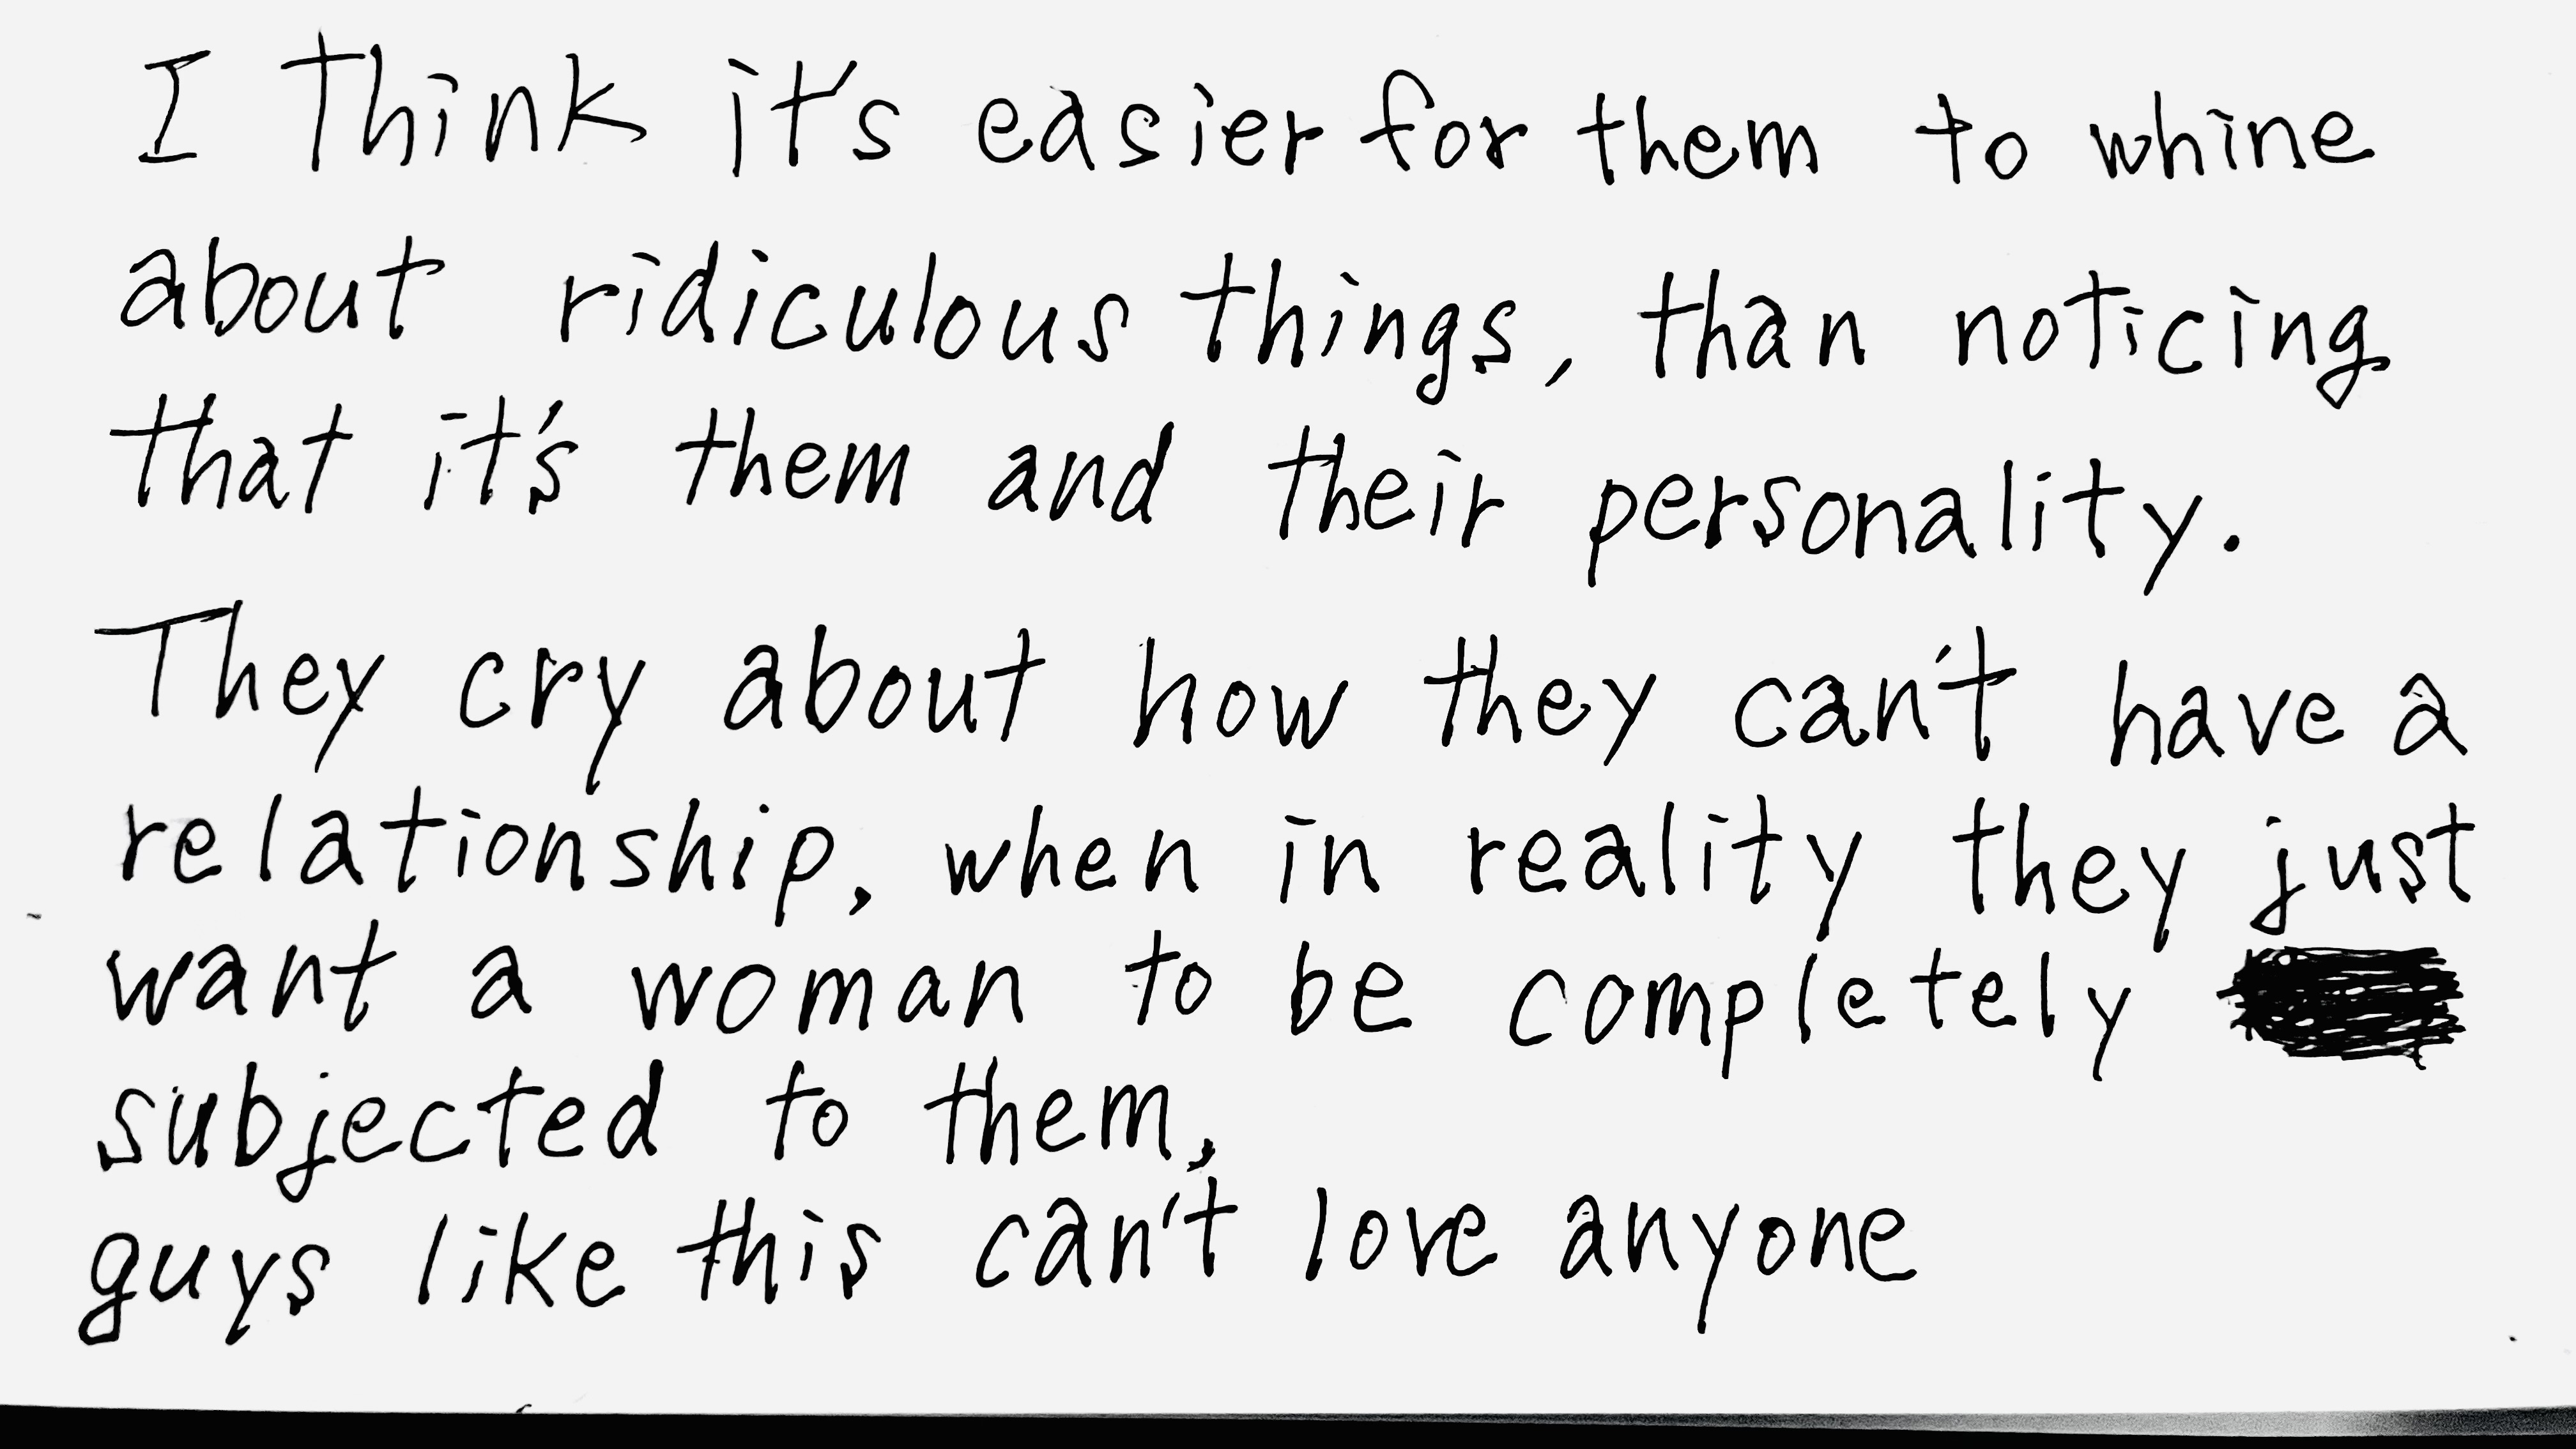 I think it's easier for them to whine
about ridiculous things, than noticing
that it's them and their personality.
They cry about how they can't have a
relationship, when in reality they just
want a woman to be completely
subjected to them,
guys like this can't love anyone